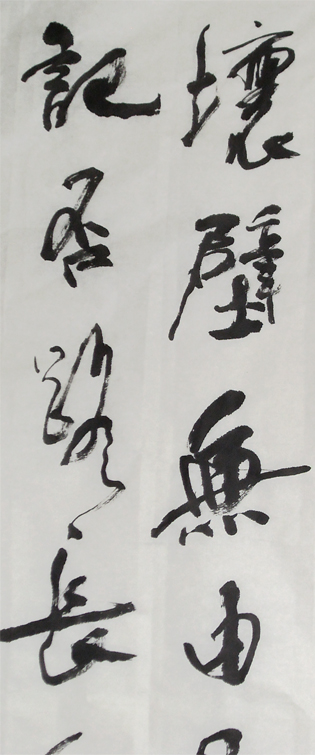 壞壁無由
記否路長